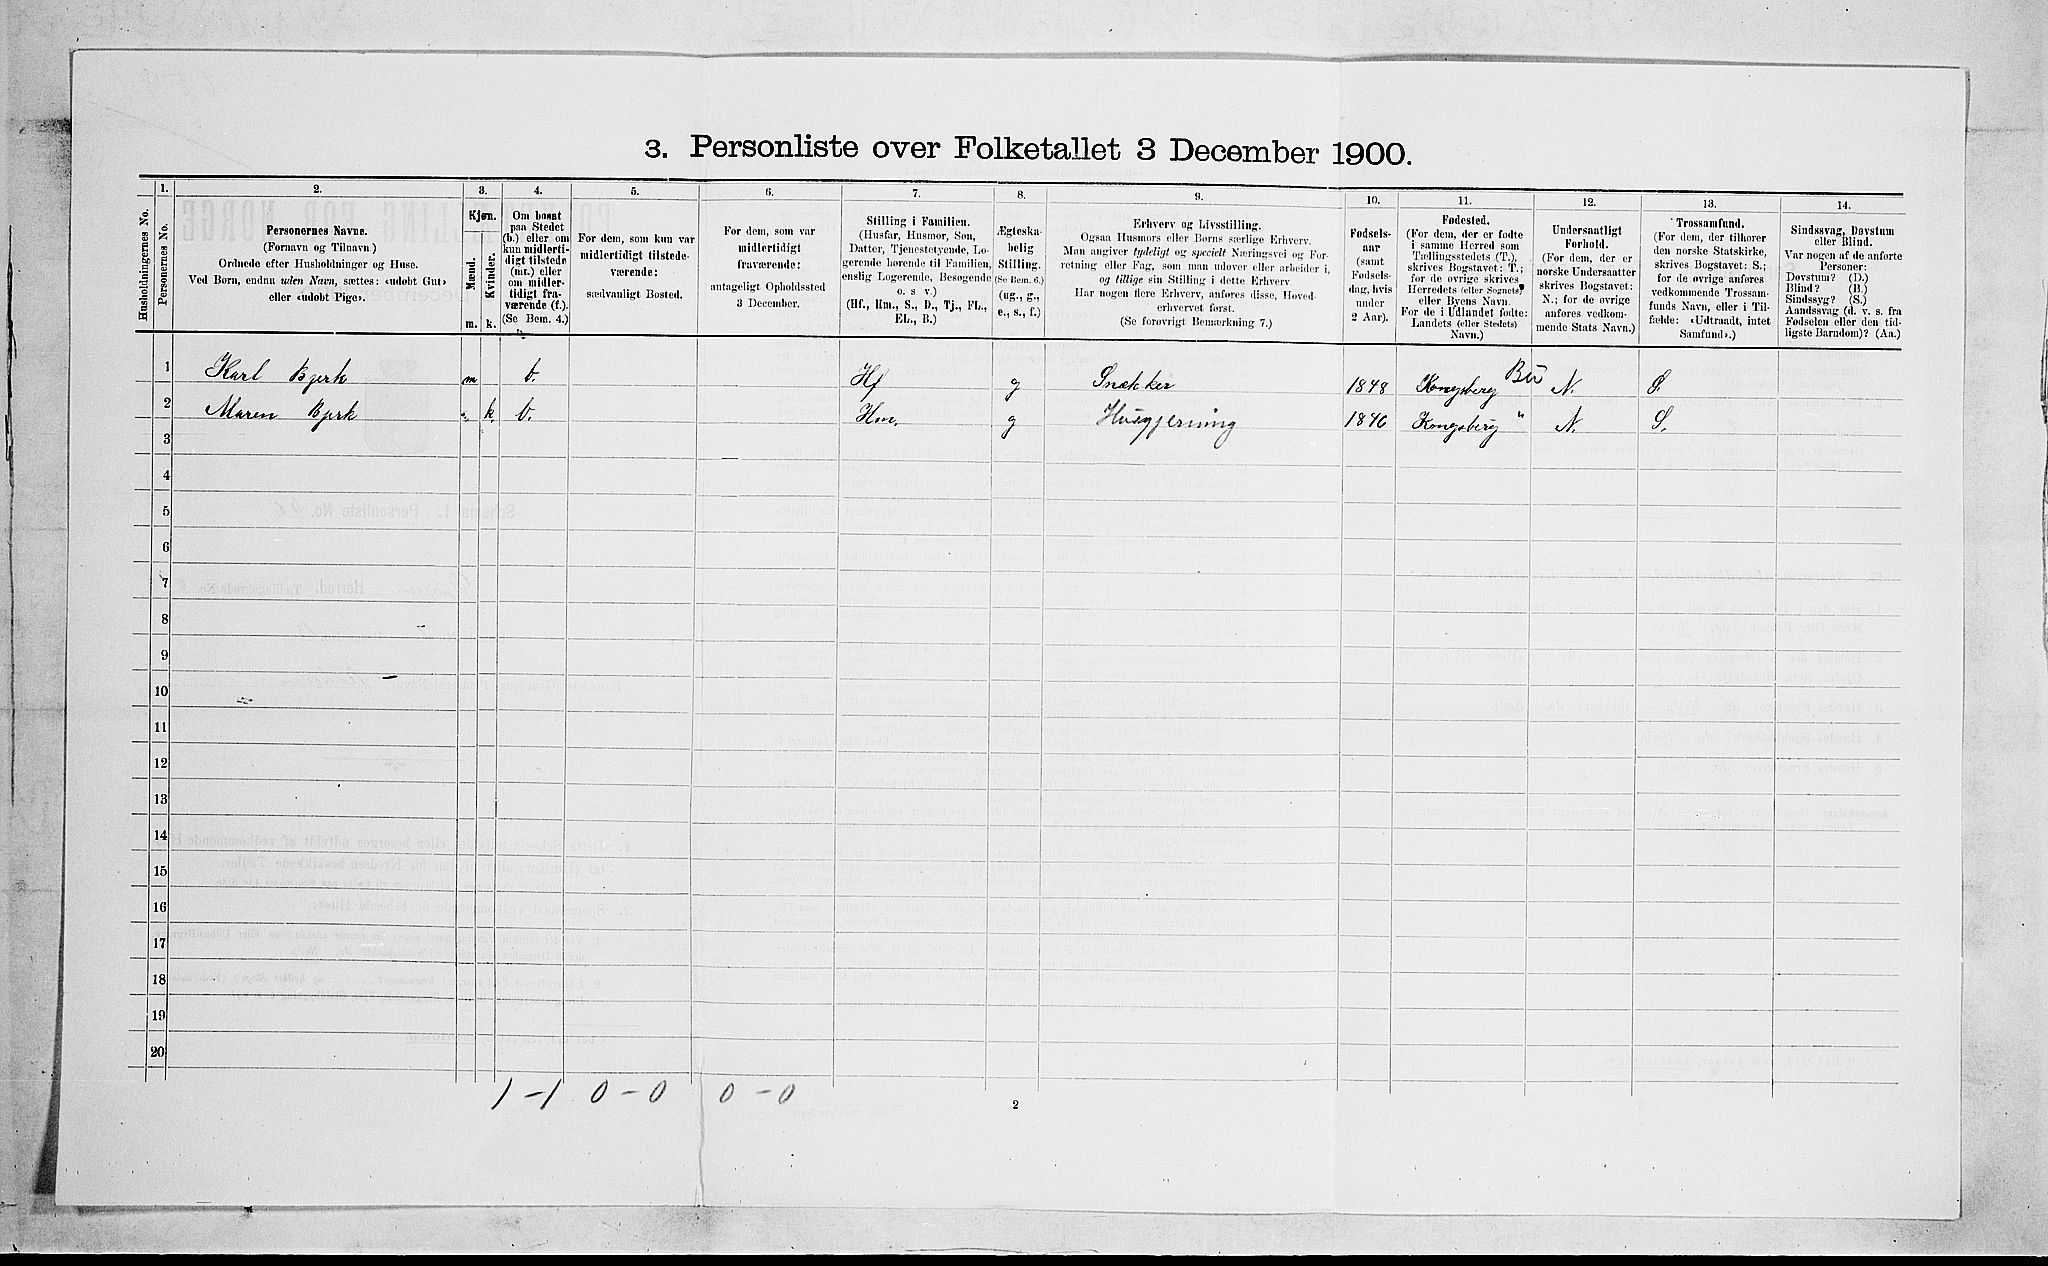 3. Personliste over Folketallet 3 December 1900.
1. 2. 3. 4. 5. 6. 7. 8. 9. 10. 11. 12. 13. 14.
Husholdningernes No.
Personernes No.
Personernes Navne.
(Fornavn og Tilnavn)
Ordnede efter Husholdninger og Huse.
Ved Børn, endnu uden Navn, sættes: «udøbt Gut»
eller «udøbt Pige».
Kjøn.
Mænd.
Kvinder.
m. k.
Om bosat
paa Stedet
(b.) eller om
kun midlerti-
digt tilstede
(mt.) eller
om midler-
tidigt fra-
værende (f.).
(Se Bem. 4.)
For dem, som kun var
midlertidigt tilstede-
værende:
sædvanligt Bosted.
For dem, som var
midlertidigt
fraværende:
antageligt Opholdssted
3 December.
Stilling i Familien.
(Husfar, Husmor, Søn,
Datter, Tjenestetyende, Lo-
gerende hørende til Familien,
enslig Logerende, Besøgende
o. s v.)
(Hf., Hm., S., D., Tj., FL.,
EL., B.)
Ægteska-
belig
Stilling.
(Se Bem. 6.)
(ug., g.,
e., s., f.)
Erhverv og Livsstilling.
Ogsaa Husmors eller Børns særlige Erhverv.
Man angiver tydeligt og specielt Næringsvei og For-
retning eller Fag, som man udøver eller arbeider i,
og tillige sin Stilling i dette Erhverv.
Har nogen flere Erhverv, anføres disse, Hoved-
erhvervet først.
(Se forøvrigt Bemærkning 7.)
Fødsels-
aar
(samt
Fødsels-
dag, hvis
under
2 Aar).
Fødested.
(For dem, der er fødte
i samme Herred som
Tællingsstedets (T.),
skrives Bogstavet: T.;
for de øvrige skrives
Herredets (eller Sognets)
eller Byens Navn.
For de i Udlandet fødte:
Landets (eller Stedets)
Navn.)
Undersaatligt
Forhold.
(For dem, der er
norske Undersaatter
skrives Bogstavet:
N.; for de øvrige
anføres vedkom-
mende Stats Navn.)
Trossamfund.
(For dem, der tilhører
den norske Statskirke,
skrives Bogstavet: S.;
for de øvrige anføres
vedkommende Trossam-
funds Navn, eller i Til-
fælde: «Udtraadt, intet
Samfund».)
Sindssvag, Døvstum
eller Blind.
Var nogen af de anførte
Personer:
Døvstum? (D.)
Blind? (B.)
Sindssyg? (S.)
Aandssvag (d. v. s. fra
Fødselen eller den tid-
ligste Barndom)? (Aa.)
1 Karl Bjerk m b. Hf g Snekker 1848 Kongsberg Bu N. S.
2 Maren Bjerk k. b. Hm. g Husgjerning 1846 Kongsberg " N. S.
3
4
5
6
7
8
9
10
11
12
13
14
15
16
17
18
19
20
1 – 1 0 – 0 0 – 0
2